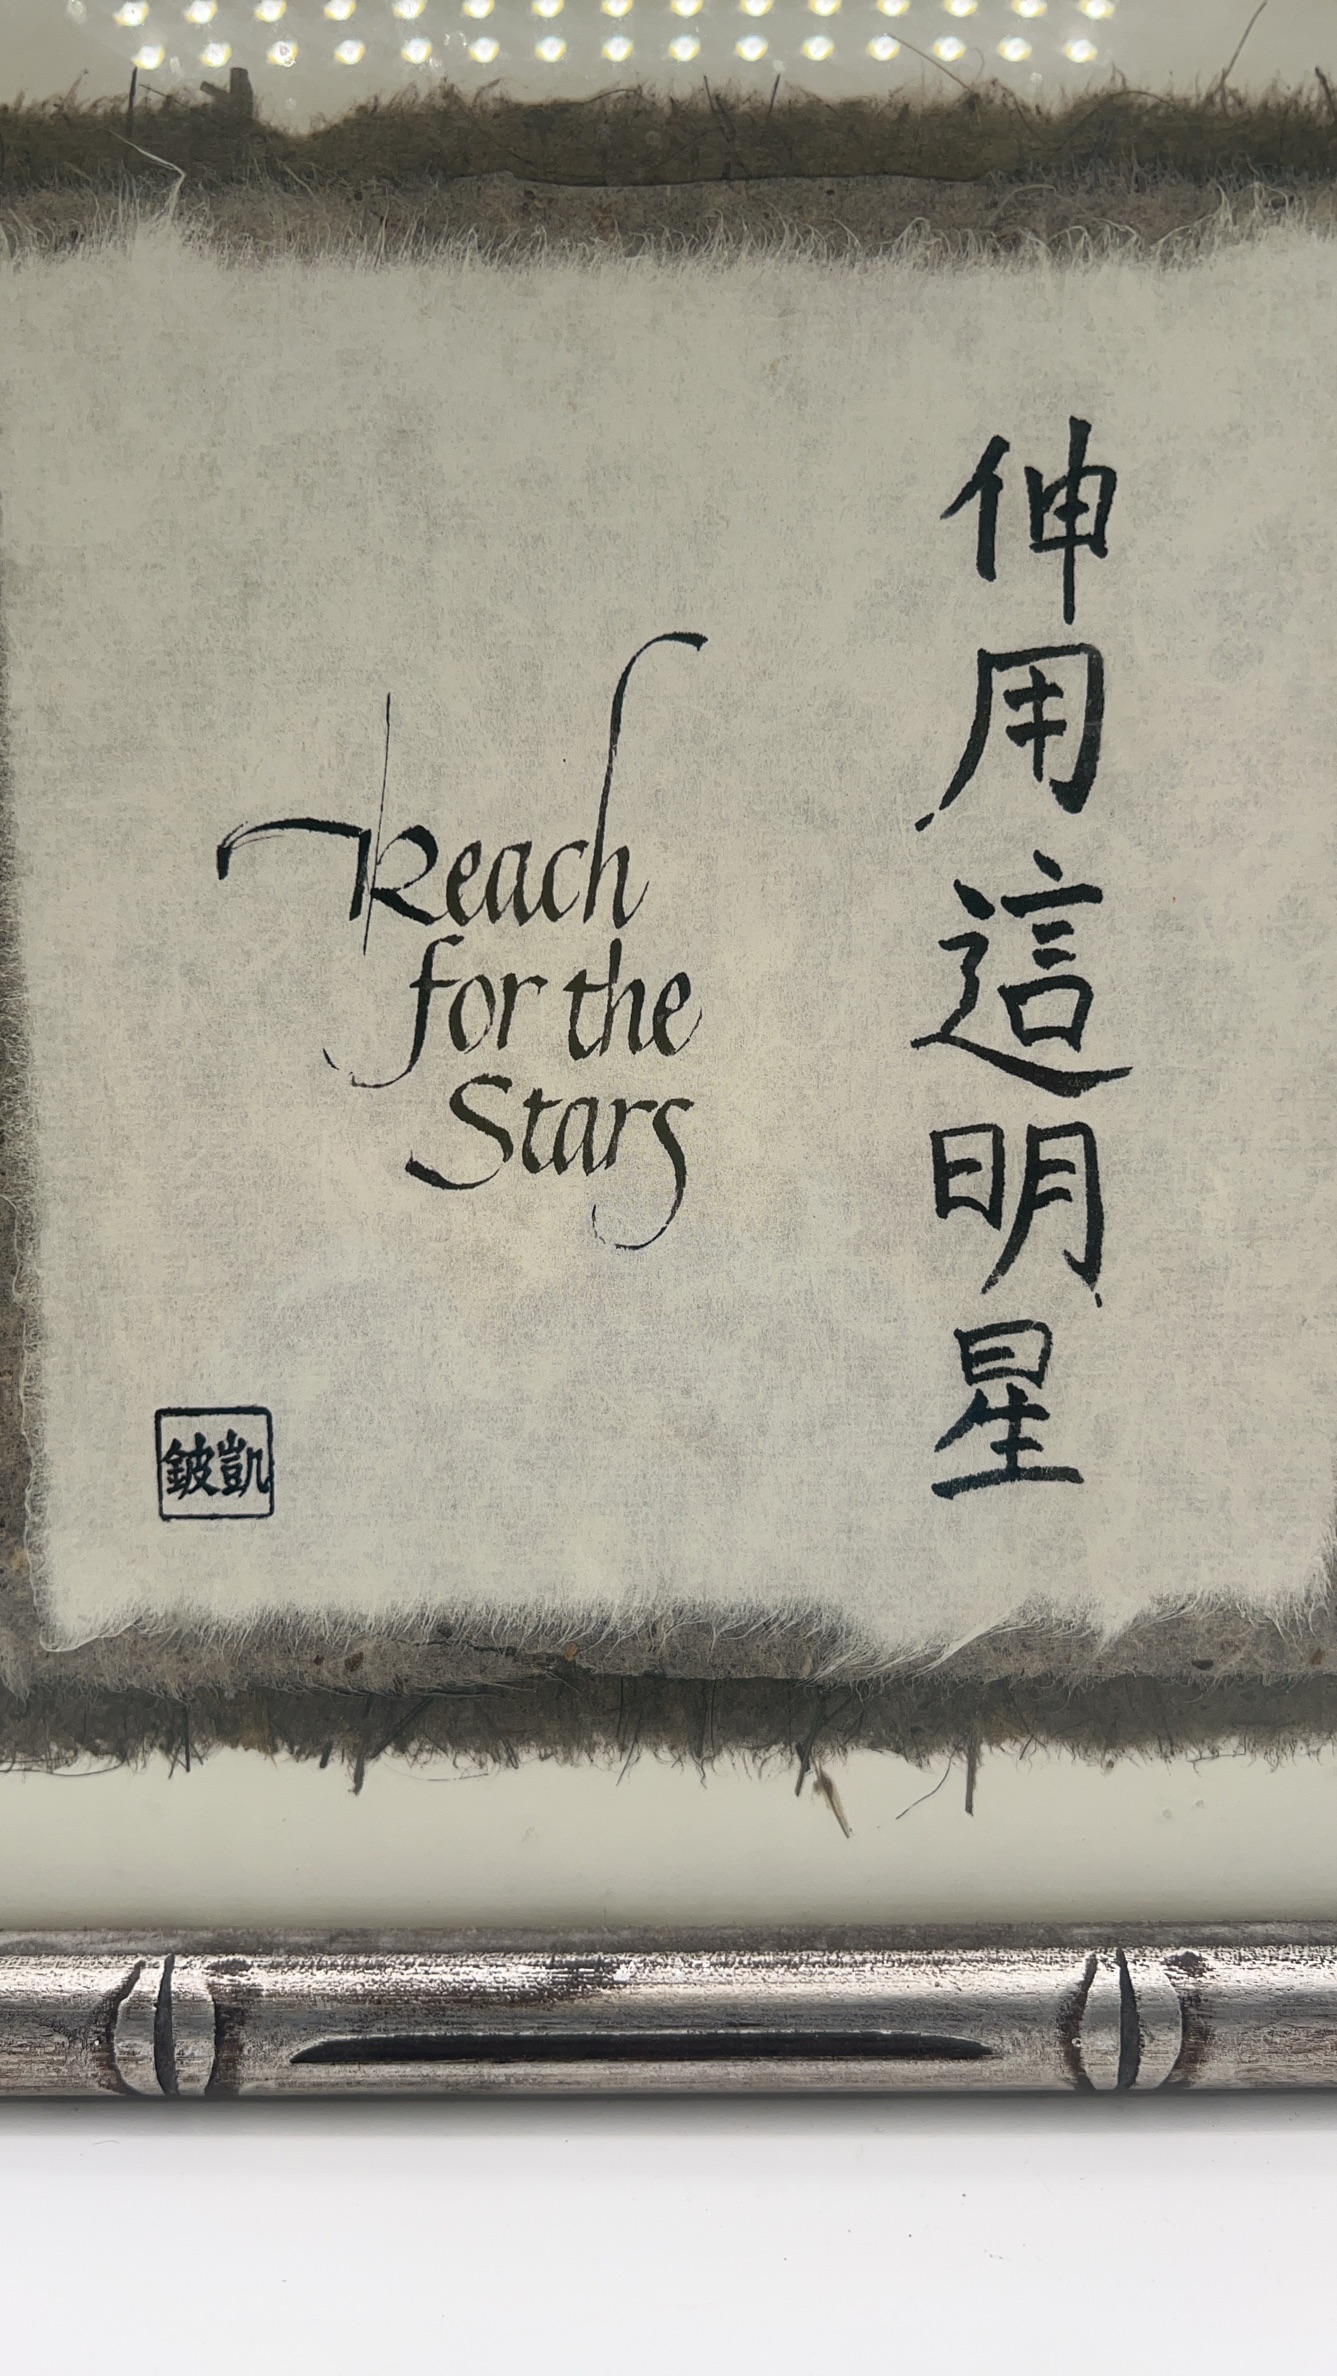 伸用這明星
Reach
for the
Stars
凱鈹